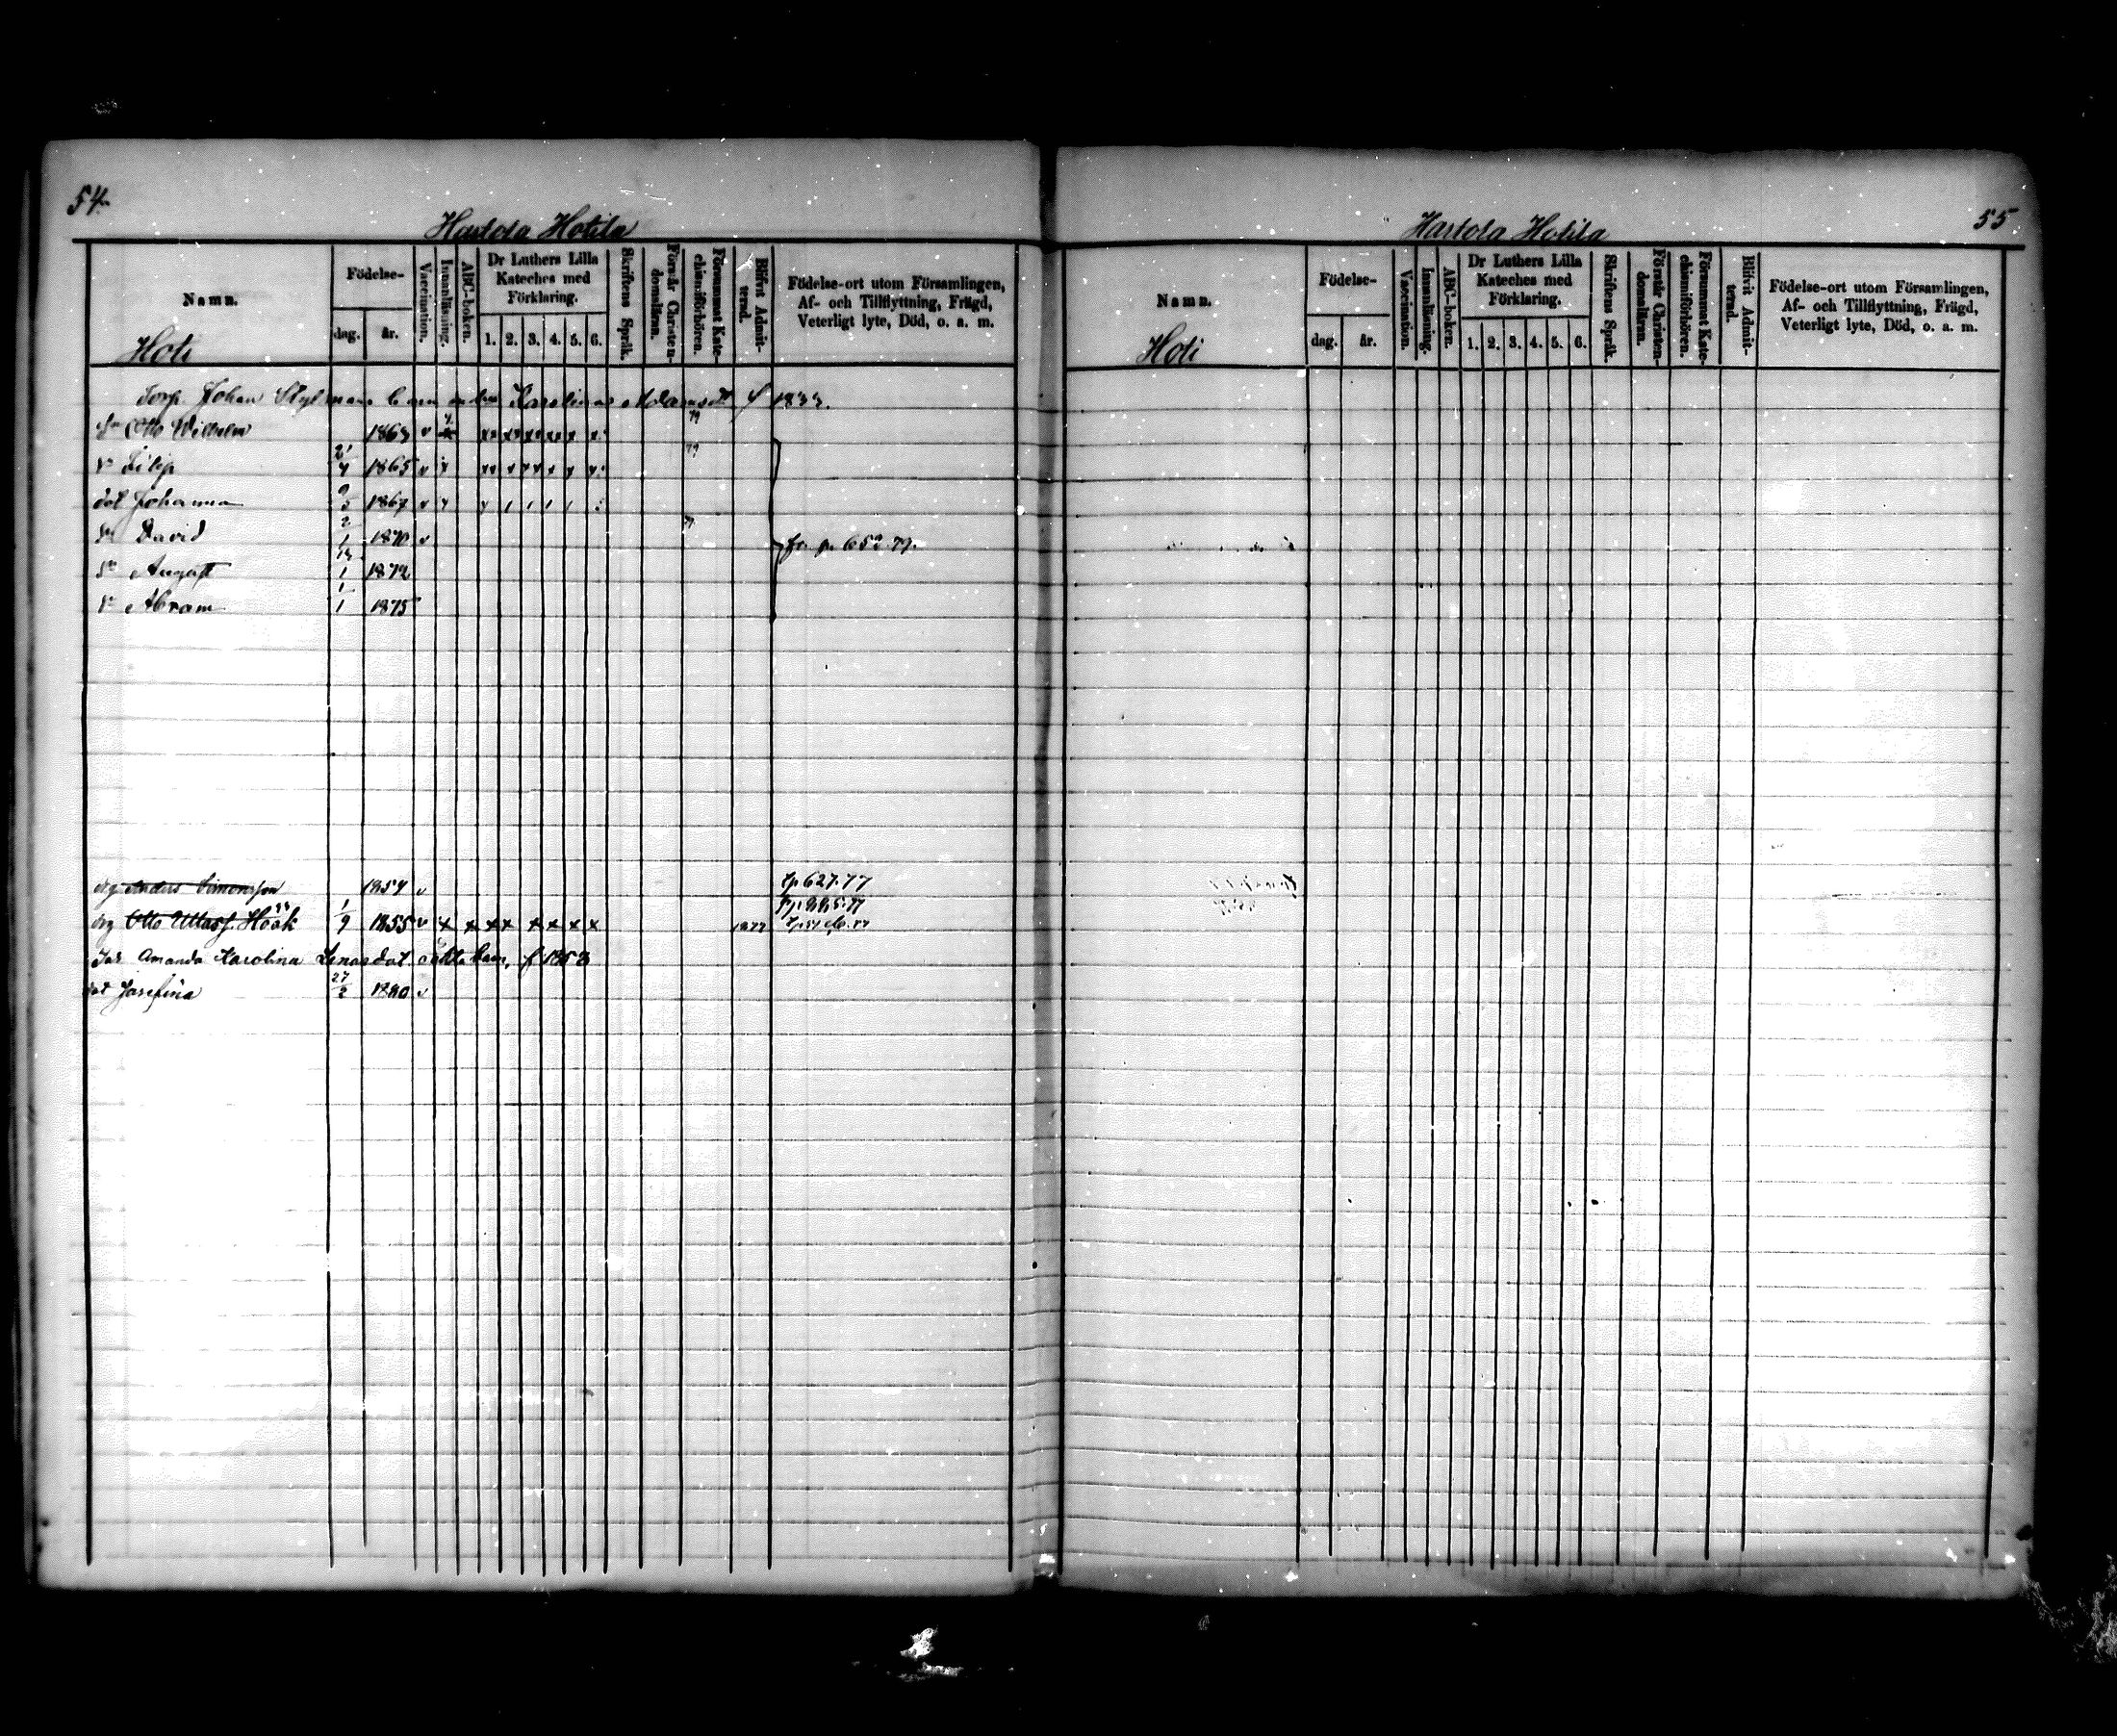 54
Hartola Hotila
Namn.
Födelse-
dag.
år.
Vaccination.
Innanläsning.
ABC-boken.
Dr Luthers Lilla
Kateches med
Förklaring.
1. 2. 3. 4. 5. 6.
Skriftens Språk.
Förstår Christen-
domsläran.
Försummat Kate-
chismiförhören.
Blifvit Admit-
terad.
Födelse-ort utom Församlingen,
Af- och Tillflyttning, Frägd,
Veterligt lyte, Död, o. a. m.
Hoti
Torp. Johan barn Karolina Adamsdtr f 1833.
Sn Otto Wilhelm 1863 v 79
Sn Filip 21/4 1865 v 79
dot Johanna 9/5 1867 v
Sn David 2/1 1870 v fr. p. 652. 79.
Sn August 1 1872
Sn Abram 1/1 1875
drg Anders Simonsson 1854 v 627.77
drg Otto Höök 1/9 1855 v x x x x x x x x x 1877
Amanda Karolina Lenasdot. f 1853
dot Josefina 27/2 1880 v
55
Hartola Hotila
Namn.
Födelse-
dag.
år.
Vaccination.
Innanläsning.
ABC-boken.
Dr Luthers Lilla
Kateches med
Förklaring.
1. 2. 3. 4. 5. 6.
Skriftens Språk.
Förstår Christen-
domsläran.
Försummat Kate-
chismiförhören.
Blifvit Admit-
terad.
Födelse-ort utom Församlingen,
Af- och Tillflyttning, Frägd,
Veterligt lyte, Död, o. a. m.
Hoti